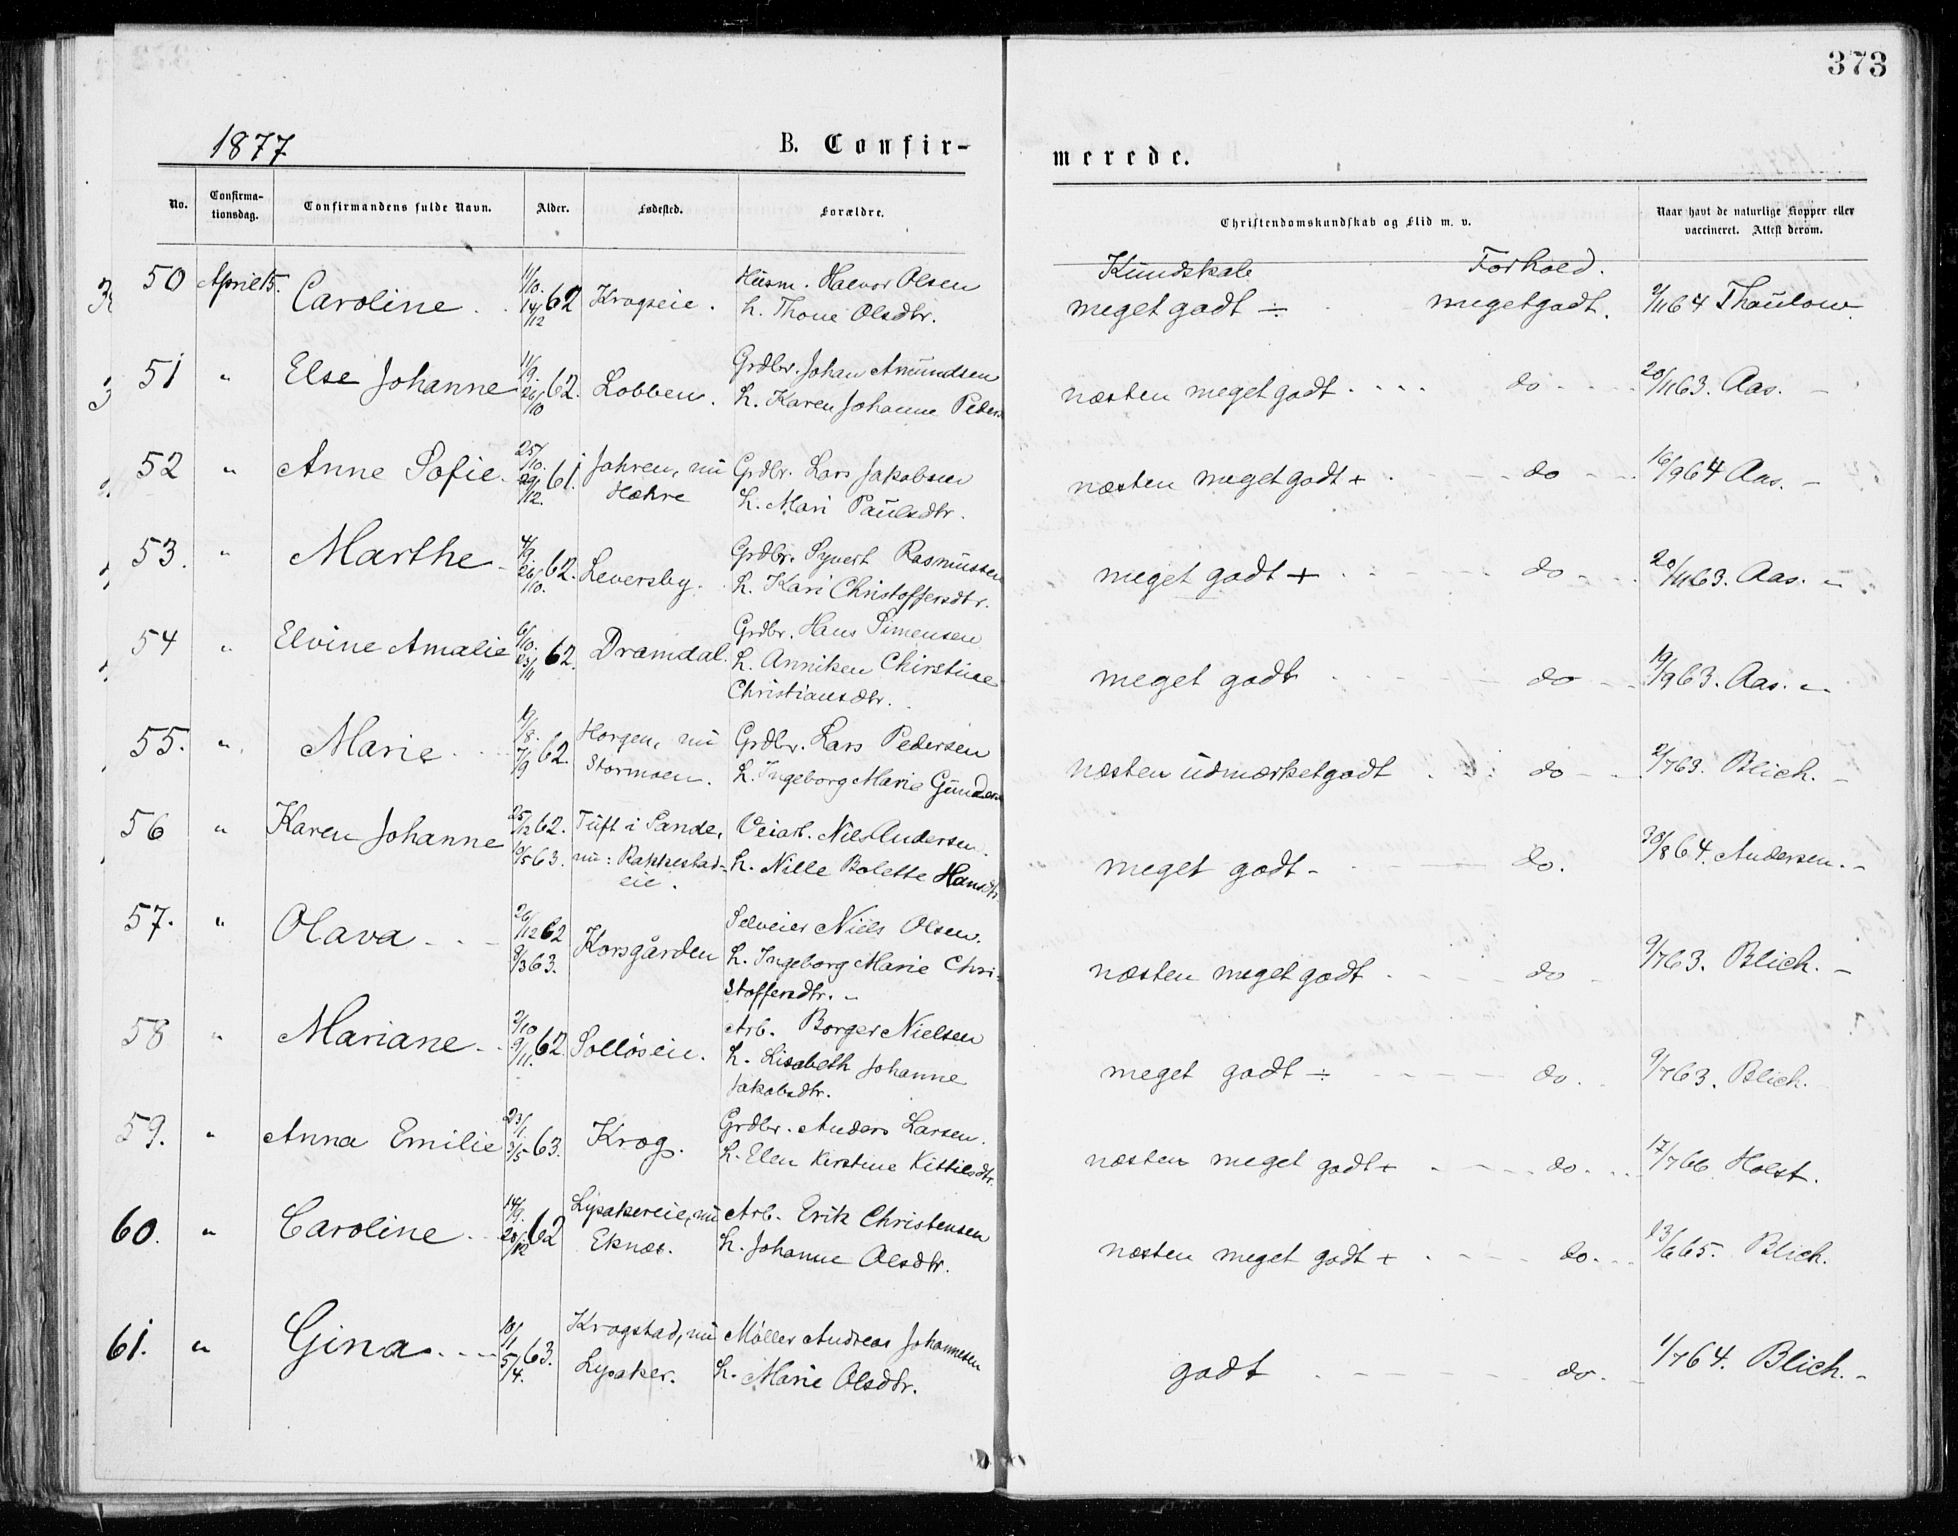 373
1877
B. Confir-
merede.
No.
Confirma-
tionsdag.
Confirmandens fulde Navn.
Alder.
Fødested.
Forældre.
Christendomskundskab og Flid m. v.
Naar havt de naturlige Kopper eller
vaccineret. Attest derom.
Kundskab
Forhold.
50 April 15. Caroline 11/10. 14/12 62 Krogseie. Husm. Halvor Olsen
h. Thone Olsdtr.
meget godt ÷ meget godt. 9/11 64 Thaulow.
51 " Else Johanne 11/9. 26/10 62. Lobben. Grdbr. Johan Amundsen
h. Karen Johanne Peders
næsten meget godt do 20/11 63. Aas.
52 " Anne Sofie 25/10. 29/12. 61. Jahren, nu Grdbr. Lars Jakobsen
Hækre h. Mari Paulsdtr.
næsten meget godt + do 16/9 64 Aas.
53. " Marthe 4/9 26/10. 62. Leversby. Grdbr. Syvert Rasmussen
h. Kari Christoffersdtr.
meget godt + do 20/11 63. Aas.
54 " Elvine Amalie 6/10. 23/11 62. Dramdal. Grdbr. Hans Simensen
h. Anniken Chirstine
Christiansdtr.
meget godt do 19/9 63. Aas.
55. " Marie 19/8. 7/9 62. Horgen, nu Grdbr. Lars Pedersen
Stormoen. h. Ingeborg Marie Gunders
næsten udmærket godt do 2/7 63. Blich.
56 " Karen Johanne 25/12 62. Tuft i Sande, Veiarb. Nils Andersen.
10/5 63. nu: Rakkestad- h. Nille Bolette Hansdtr
eie.
meget godt do. 30/8 64. Andersen.
57. " Olava 26/12 62 Korsgården Selveier Niels Olsen.
8/3 63. h. Ingeborg Marie Chri-
stoffersdtr.
næsten meget godt do 9/7 63. Blich.
58 " Mariane 2/10 9/11. 62. Solløseie. Arb. Borger Nielsen
h. Lisabeth Johanne
Jakobsdtr.
meget godt ÷ do. 9/7 63. Blich.
59. " Anna Emilie 23/1. 3/5 63. Krog. Grdbr. Anders Larsen.
h. Elen Kirstine Kittilsdtr.
næsten meget godt + do. 17/7 66. Holst.
60. " Caroline 14/9. 28/12 62 Lysakereie, nu Arb. Erik Christensen
Eknæs. h. Johanne Olsdtr.
næsten meget godt + do. 13/6 65. Blich.
61. " Gina 10/1 5/4. 63. Krogstad, nu Møller Andreas Johannesen
Lysaker. h. Marie Olsdtr.
godt do. 1/7 64. Blich.